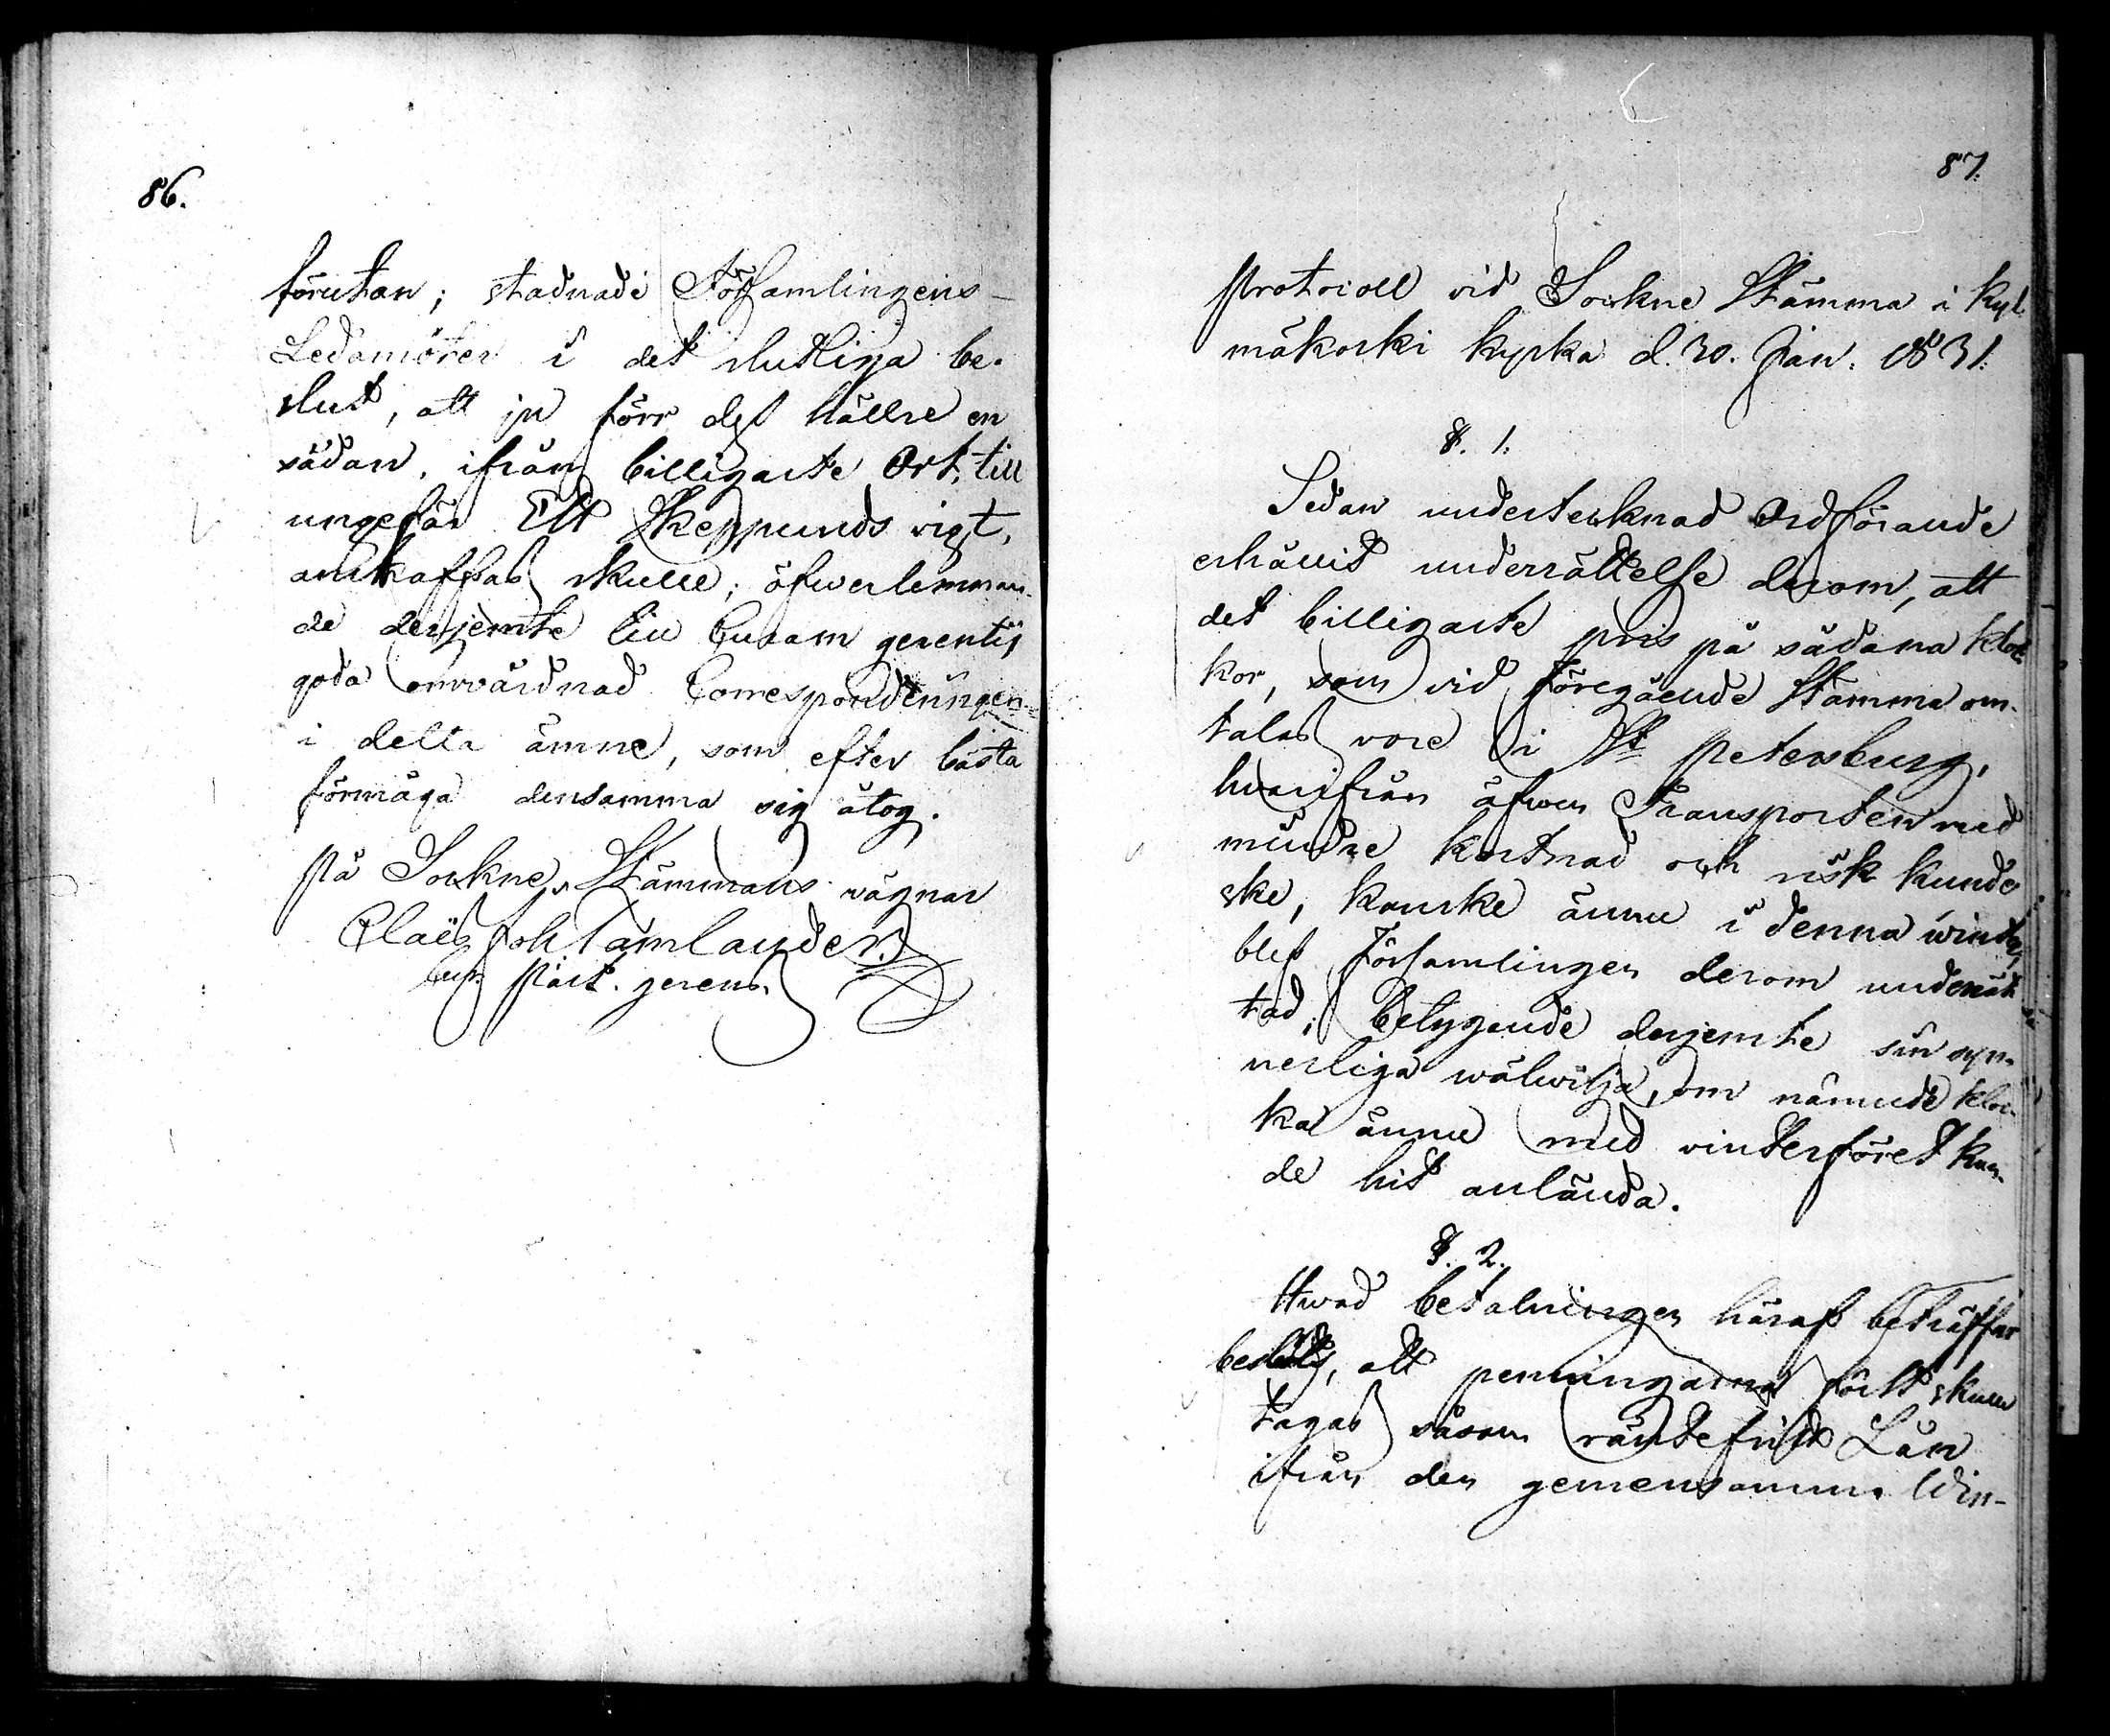 86.
förutan; stadnade Församlingens
Ledamöter i det slutliga be-
slut, att ju förr dess hällre en
sådan, ifrån billigaste Ort, till
ungefär Ett Skeppunds vigt,
anskaffas skulle; öfwerlemnan-
de derjemte till Curam gerentis
goda omvårdnad Correspondencen
i detta ämne, som efter bästa
förmåga densamma sig åtog.
På Sockne Stämmans vägnar
Claës Joh Tamlander.
Cur. Past. gerens.
87.
Protocoll vid Sockne Stämma i Kyl-
mäkoski kyrka d. 30. Jan. 1831.
§. 1.
Sedan undertecknad Ordförande
erhållit underrättelse derom, att
det billigaste pris på sådana kloc-
kor, som vid föregående Stämma om-
talas vore i St Petersburg,
hvarifrån äfwen Transporten med
mindre kostnad och risk kunde
ske, kanske ännu i denna winter,
blef Församlingen derom underrät-
tad; betygande derjemte sin syn-
nerliga wälwilja, om nämnde kloc-
ka ännu med vinterföret kun-
de hit anlända.
§. 2.
Hwad betalningen häraf beträffar
beslöts, att penningarne först skulle
tagas såsom räntefritt Lån
ifrån den gemensamma Win-